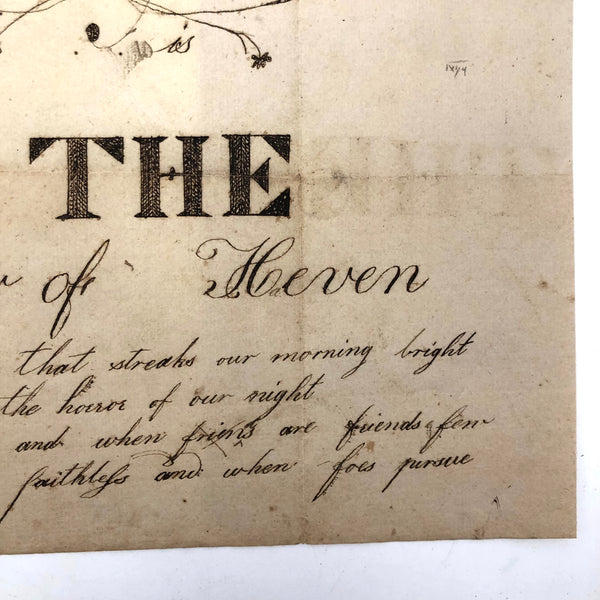 is
THE
of Heven
that streaks our morning bright
the horror of our night
and when friens are friends few
faithless and when foes pursue